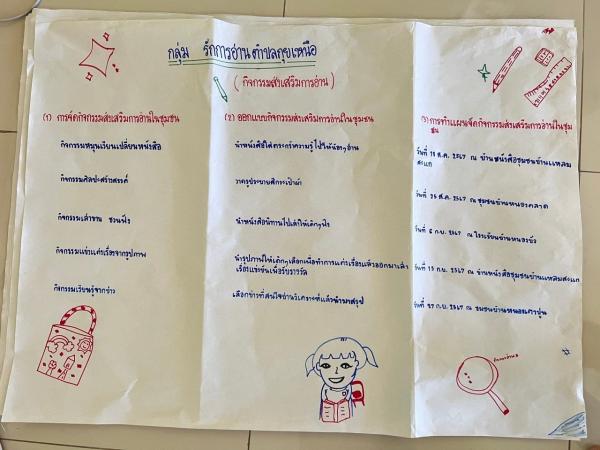 กลุ่ม รักการอ่านตำบลกุยเหนือ
(กิจกรรมส่งเสริมการอ่าน)
(1) การจัดกิจกรรมส่งเสริมการอ่านในชุมชน
กิจกรรมหมุนเวียนเปลี่ยนหนังสือ
กิจกรรมศิลปะสร้างสรรค์
กิจกรรมเล่าขาน ชวนฟัง
กิจกรรมแข่งเล่าเรื่องจากรูปภาพ
กิจกรรมเรียนรู้จากข่าว
(2) ออกแบบกิจกรรมส่งเสริมการอ่านในชุมชน
นำหนังสือใส่ตระกร้าความรู้ไปให้น้องๆอ่าน
วาดรูประบายสีกระเป๋าผ้า
นำหนังสือนิทานไปเล่าให้เด็กๆฟัง
นำรูปภาพให้เด็กๆเลือกเพื่อทำการแต่งเรื่องแล้วออกมาเล่า
เรื่องแข่งขันเพื่อรับรางวัล
เลือกข่าวที่สนใจอ่านวิเคราะห์แล้วนำมาสรุป
(3) การทำแผนจัดกิจกรรมส่งเสริมการอ่านในชุม
ชน
วันที่ ส.ค. 2567 ณ บ้านหนังสือชุมชนบ้านแหลม
สะแก
วันที่ ส.ค. 2567 ณ ชุมชนบ้านหนองตลาด
วันที่ 6 ก.ย. 2567 ณ โรงเรียนบ้านหนองบัว
วันที่ 13 ก.ย. 2567 ณ บ้านหนังสือชุมชนบ้านแหลมสะแก
วันที่ ก.ย. 2567 ณ ชุมชนบ้านหนองเตาปูน